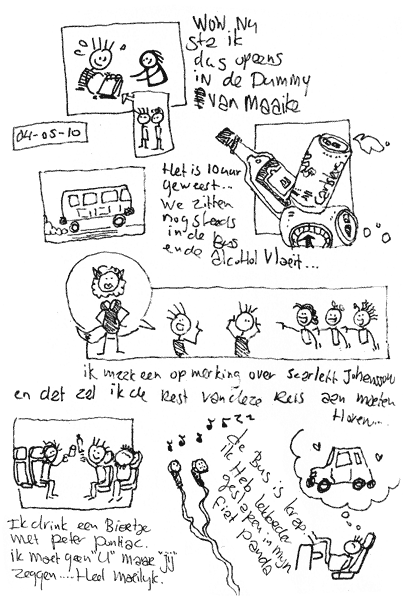 WOW, NU
sta ik
dus opeens
IN de Dummy
VAN Maaike
04-05-10
Het is 10 uur
geweest...
we zitten
nog steeds
in de Bus
en de alcohol vloeit...
ik maak een opmerking over Scarlett Johansson
en dat zal ik de Rest van deze Reis aan moeten
Horen...
zzz
de Bus is krap.
ik Heb letterlijk
geslapen in mijn
fiat panda
Ik drink een Biertje
met peter pontiac.
ik moet geen "U" maar "jij"
zeggen.... Heel Moeilijk.